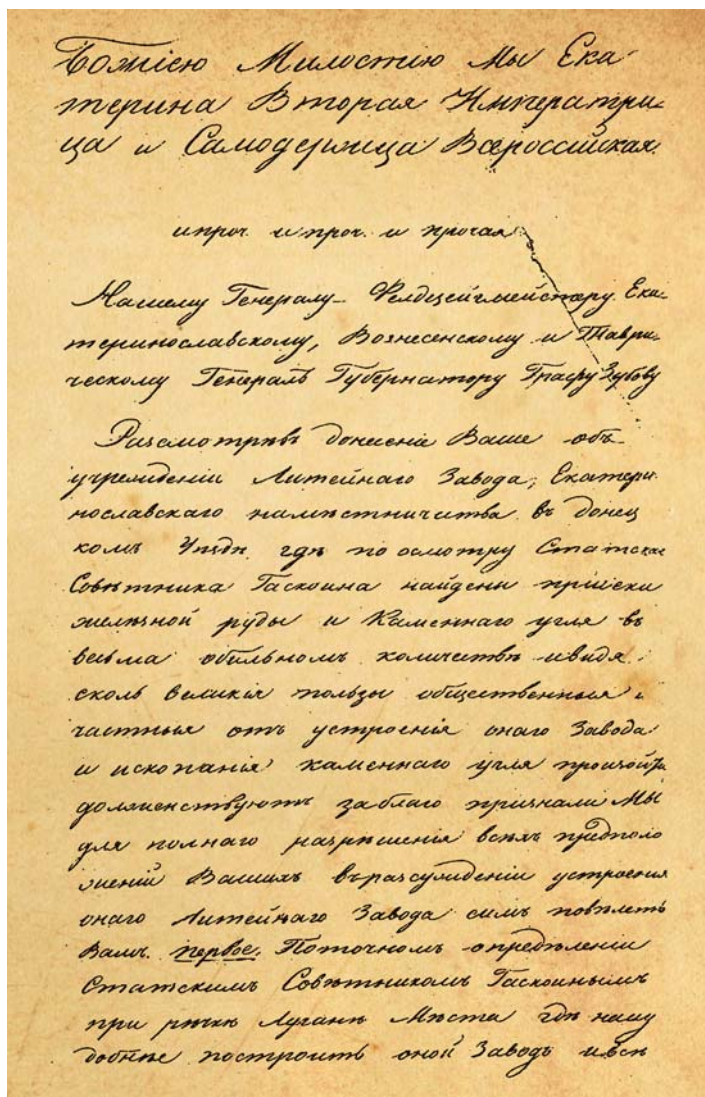 Божіею Милостию Мы Ека-
терина Вторая Императри-
ца и Самодержица Всероссійская.
и проч. и проч. и прочая
Нашему Генералу-Фелдцейгмейстеру Ека-
теринославскому, Вознесенскому и Таври-
ческому Генералъ Губернатору Графу Зубову
Разсмотрѣвъ донесеніе Ваше объ
учрежденіи Литейнаго Завода, Екатери-
нославскаго намѣстничества въ донец
комъ Уѣздѣ, гдѣ по осмотру Статска
Совѣтника Гаскоина найдены пріиски
желѣзной руды и Каменнаго угля въ
весьма обильномъ количествѣ и видя
сколь великія пользы общественныя и
частныя отъ устроенія онаго Завода
и ископанія каменнаго угля произойти
долженствуютъ заблаго признали Мы
для полнаго разрѣшенія всѣхъ предполо
женій Вашихъ въ разсужденіи устроения
онаго Литейнаго Завода симъ повѣлеть
Вамъ. первое. По точномъ определеніи
Статскимъ Совѣтникомъ Гаскоинымъ
при рѣчкѣ Лугани Мѣста гдѣ наиу
добнѣе построить оной Заводъ и всѣ